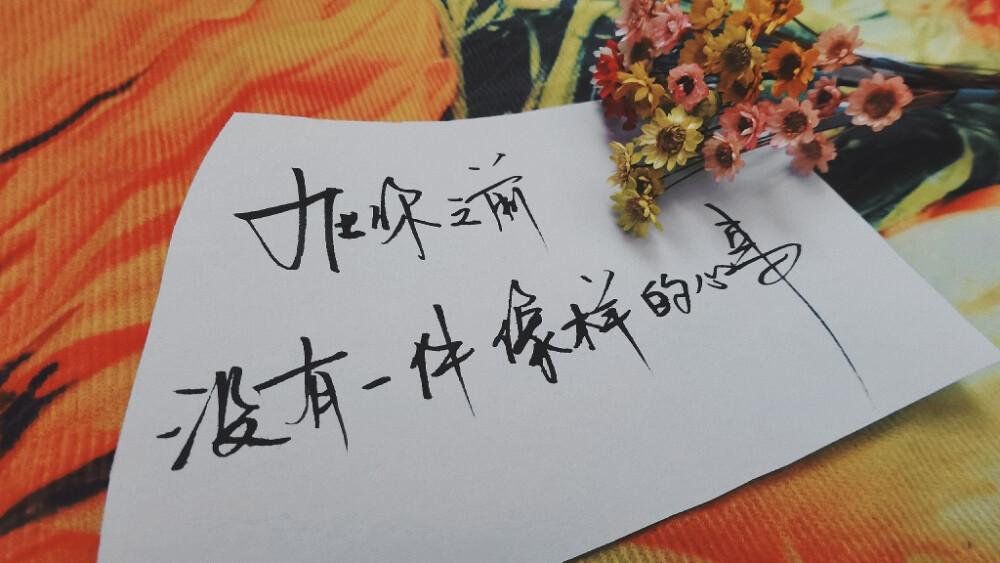 在你之前
没有一件像样的心事